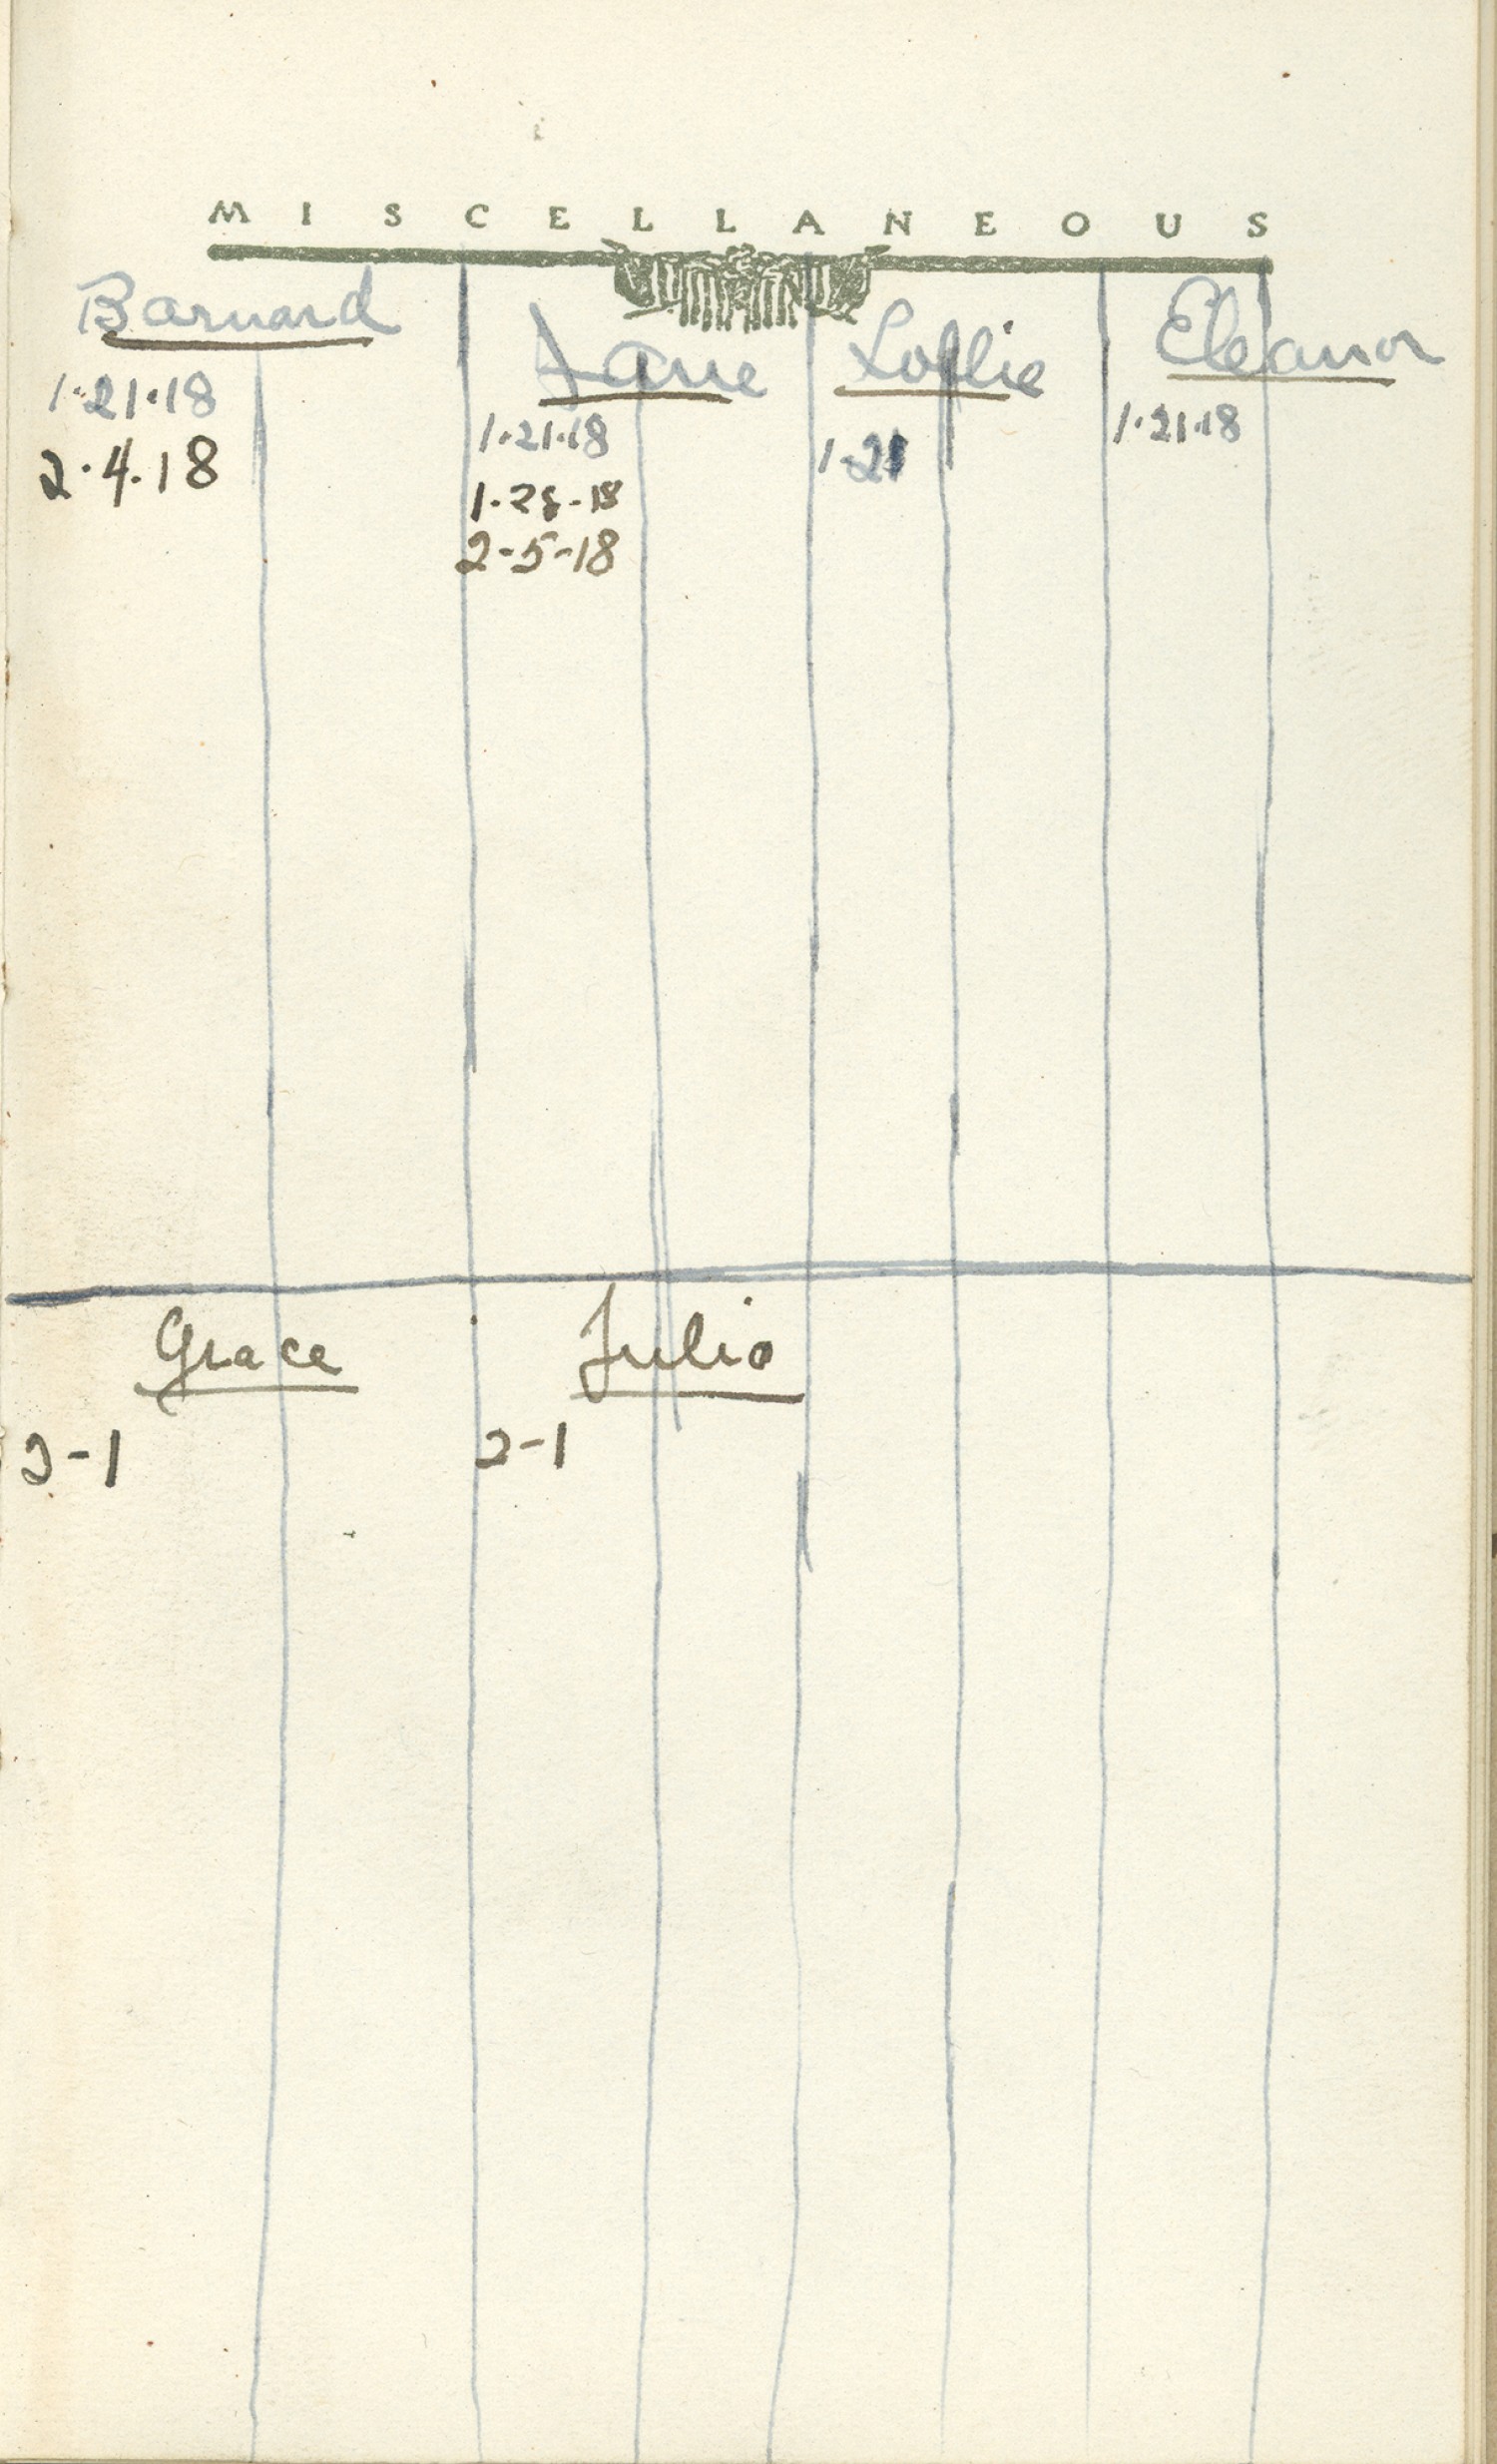 MISCELLANEOUS
Barnard Jane Loflie Eleanor
1·21·18 1·21·18 1·21 1·21·18
2·4·18 1-28-18
2-5-18
Grace Julia
2-1 2-1